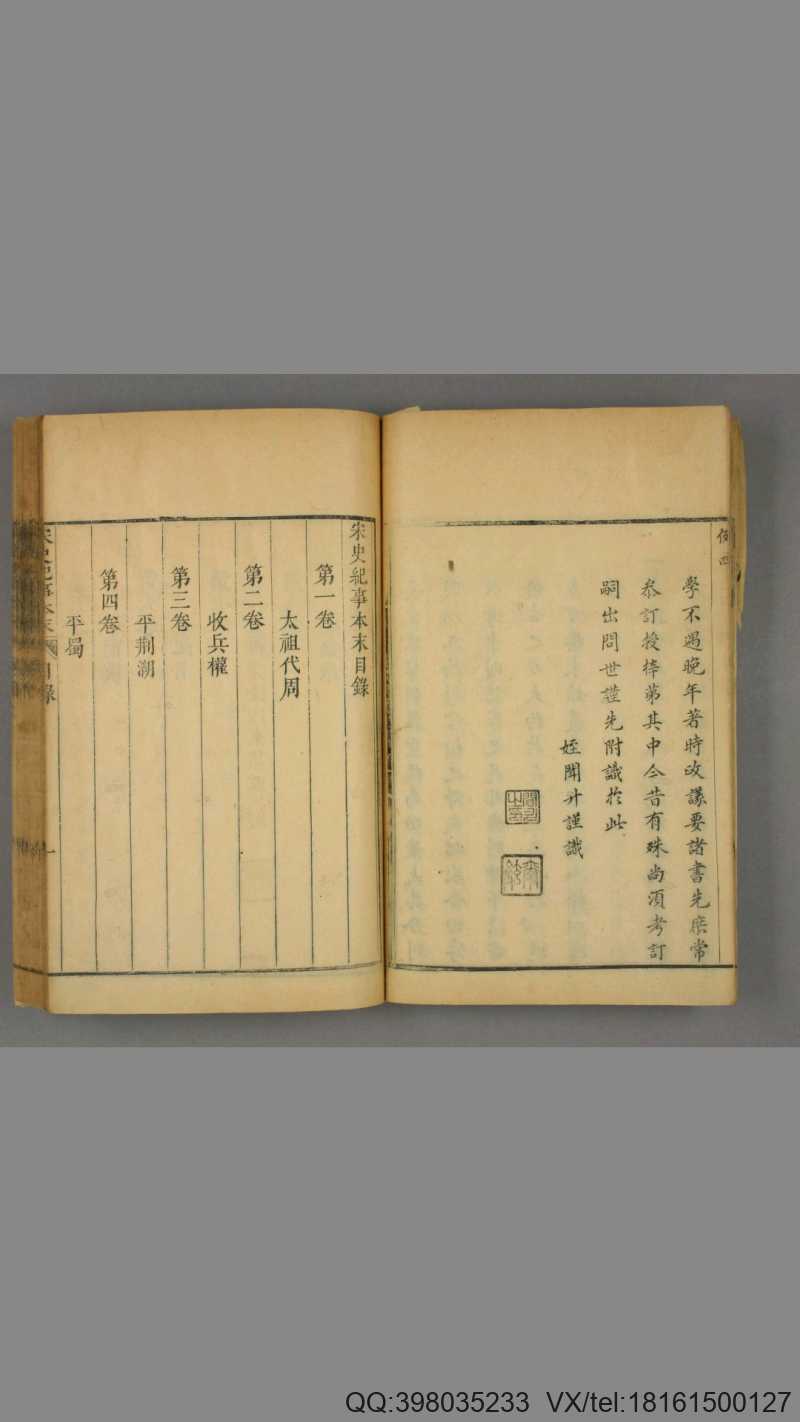 學不過晚年著時改議要諸書先庶常
叅訂授梓第其中今昔有殊尚須考訂
嗣出問世謹先附識於此
姪聞升謹識
宋史紀事本末目錄
第一卷
太祖代周
第二卷
收兵權
第三卷
平荆湖
第四卷
平蜀
宋史紀事本末 目錄
QQ:398035233 VX/tel:18161500127